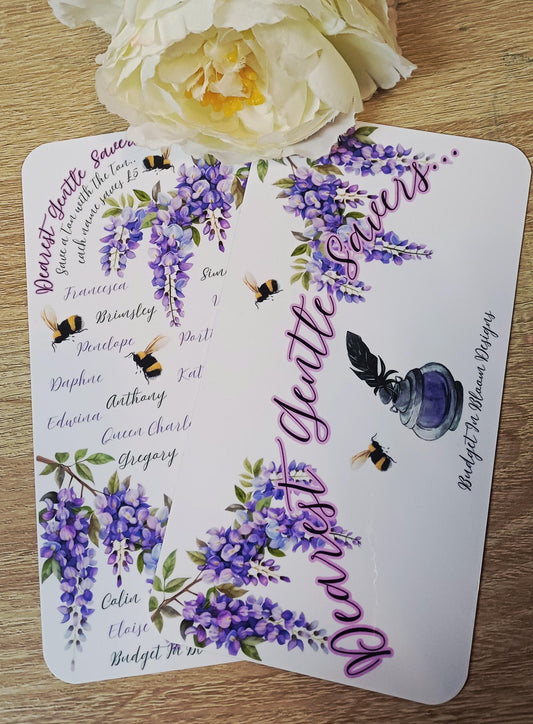 Dearest Gentle Savers
Save a tan with the Ton..
each name saves £5
Francesca
Sim
Brimsley
Penelope
Port
Daphne
Kat
Anthony
Edwina
Queen Charl
Gregory
Colin
Eloise
Budget In Bl
Dearest Gentle Savers...
Budget In Bloom Designs